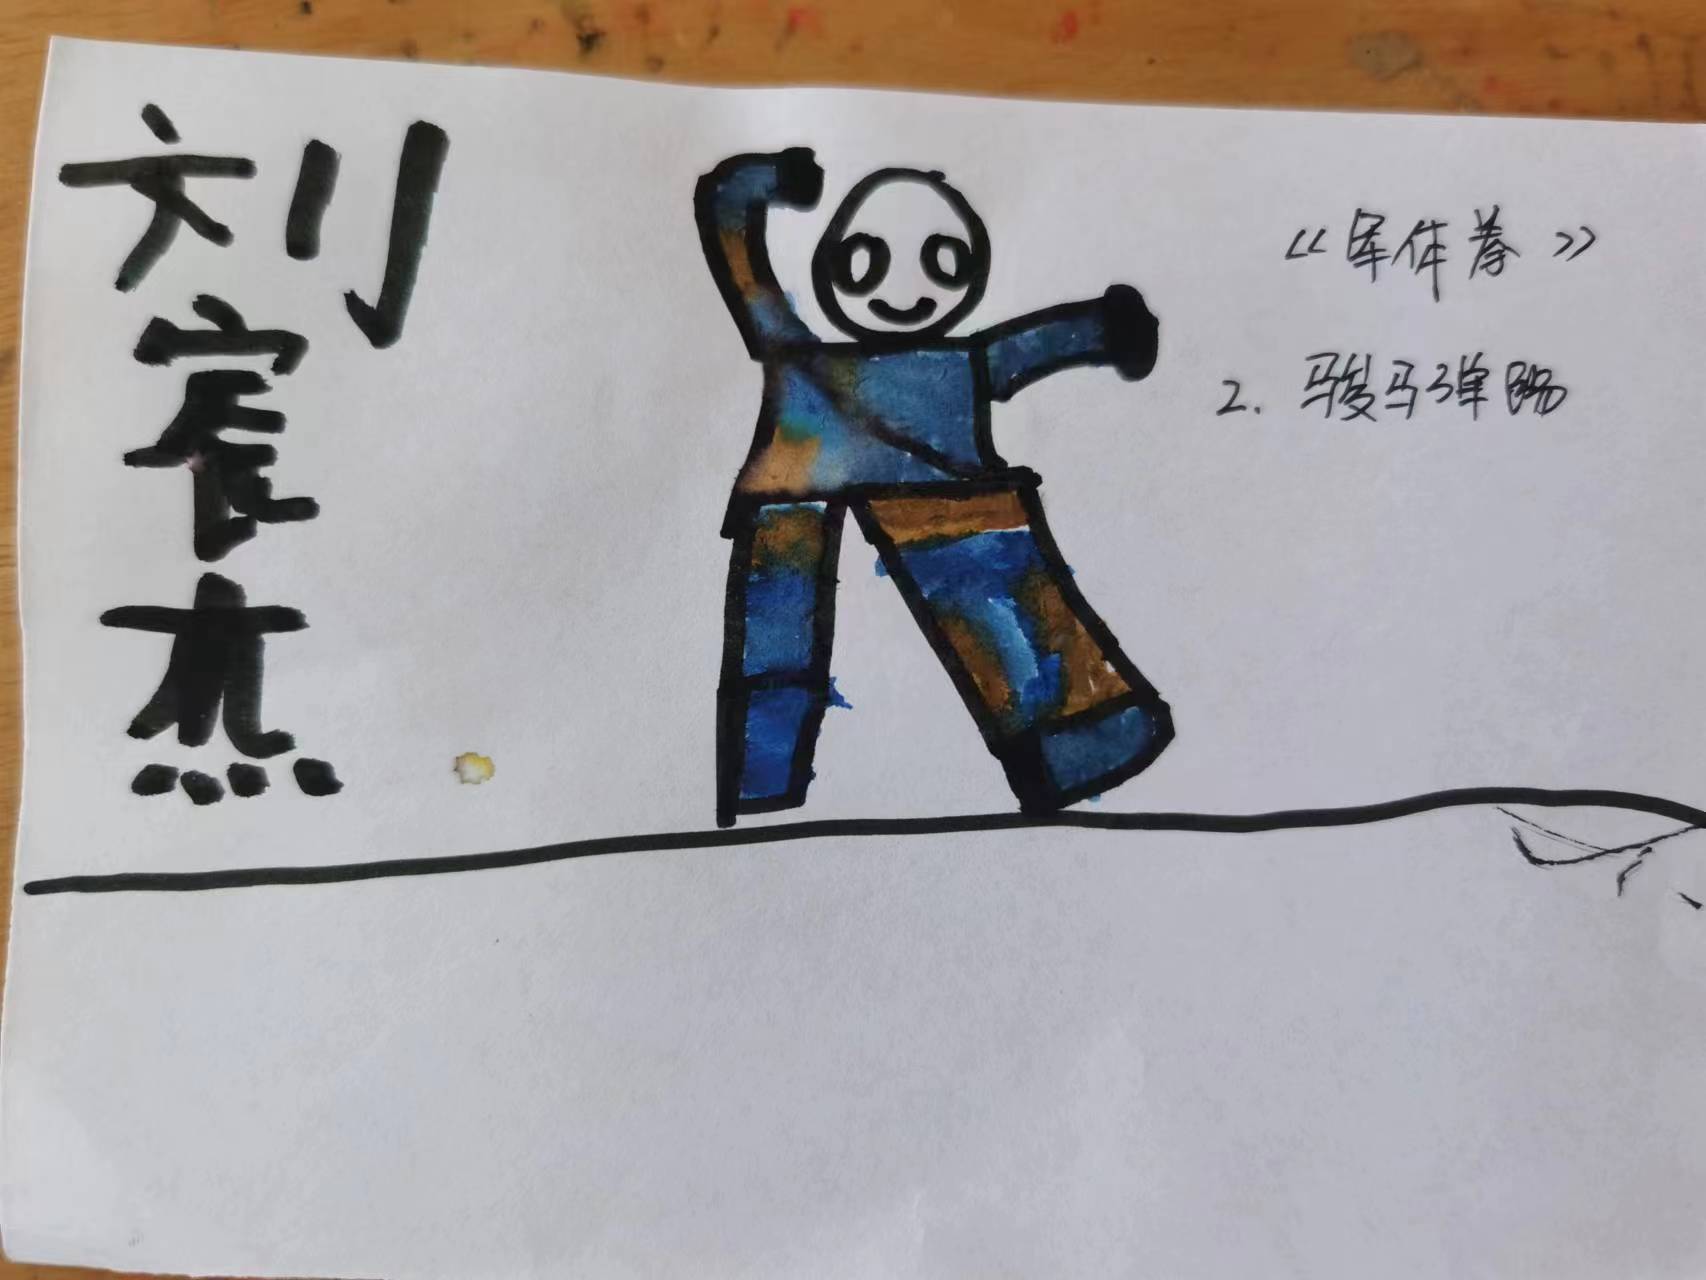 刘宸杰
《军体拳》
2. 骏马弹踢